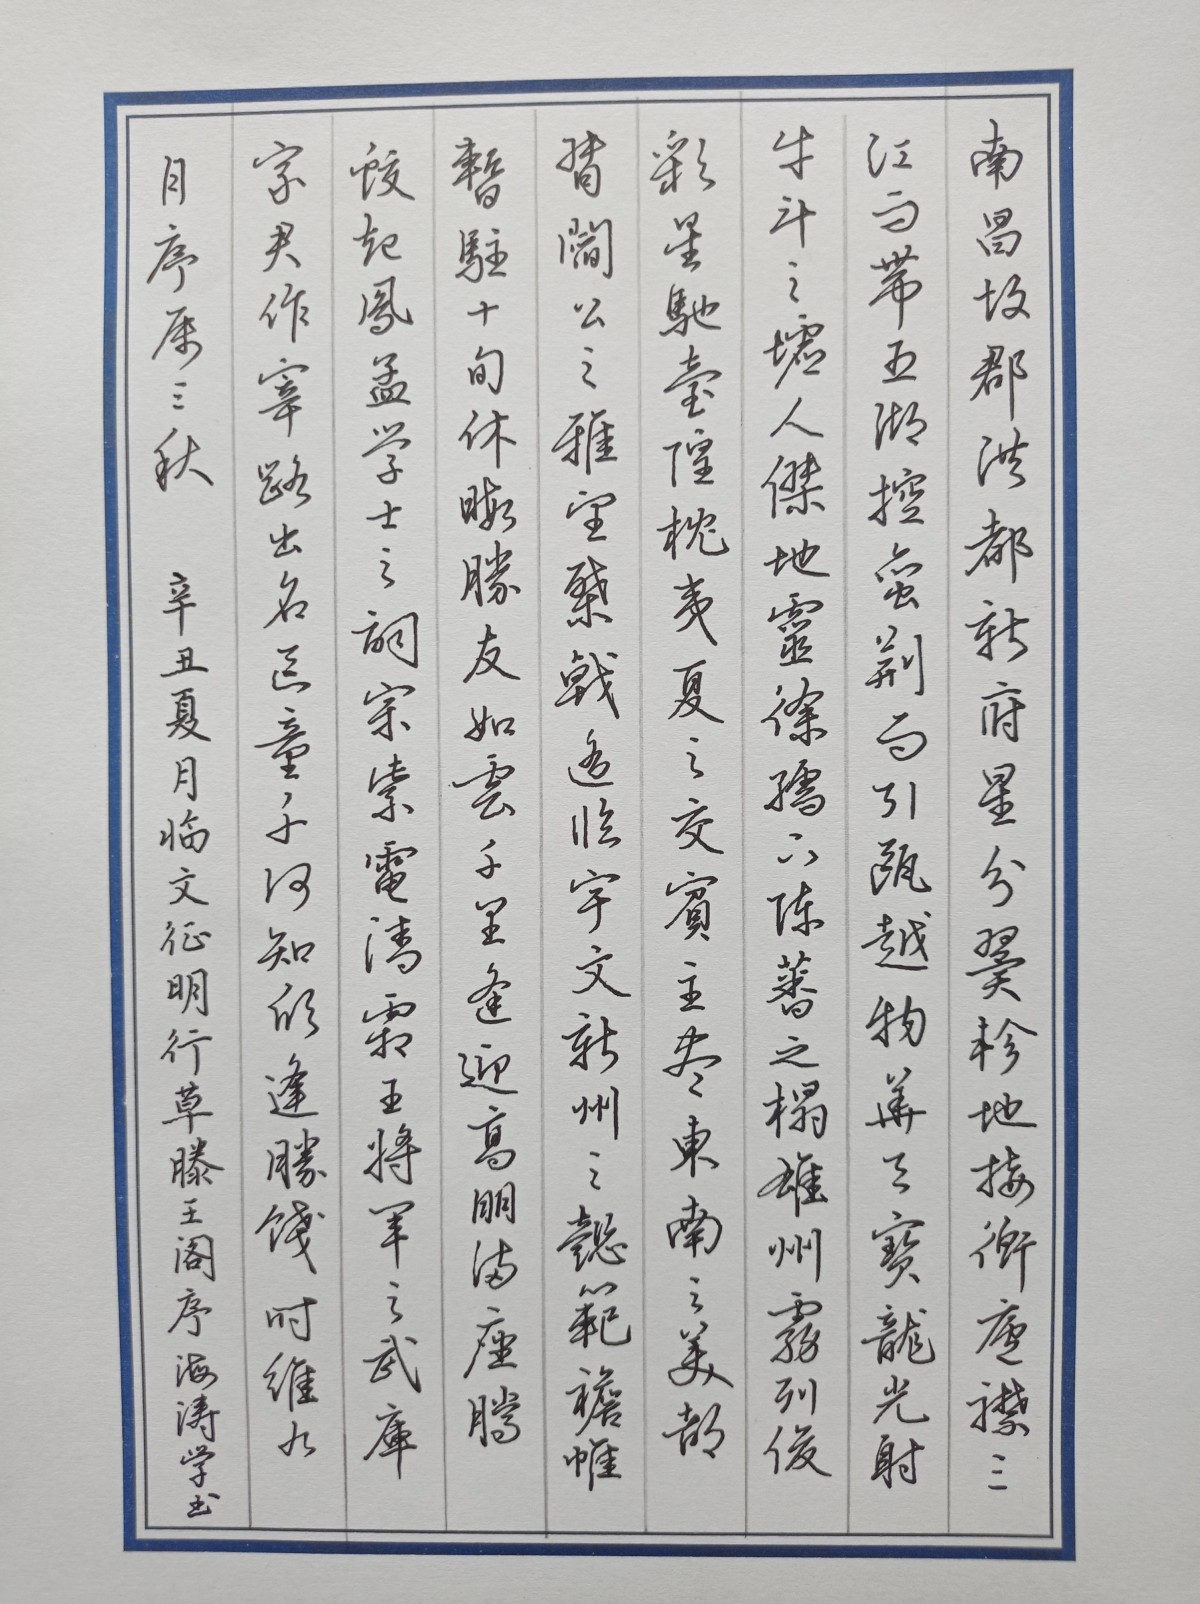 南昌故郡洪都新府星分翼軫地接衡廬襟三
江而帶五湖控蛮荆而引甌越物華天寶龍光射
牛斗之墟人傑地靈徐孺下陳蕃之榻雄州霧列俊
彩星馳臺隍枕夷夏之交賓主尽東南之美都
督閻公之雅望棨戟遥临宇文新州之懿範襜帷
暫駐十旬休暇勝友如雲千里逢迎高朋满座騰
蛟起鳳孟学士之詞宗紫電清霜王将军之武庫
家君作宰路出名區童子何知躬逢勝餞时維九
月序属三秋 辛丑夏月临文征明行草滕王阁序海涛学书